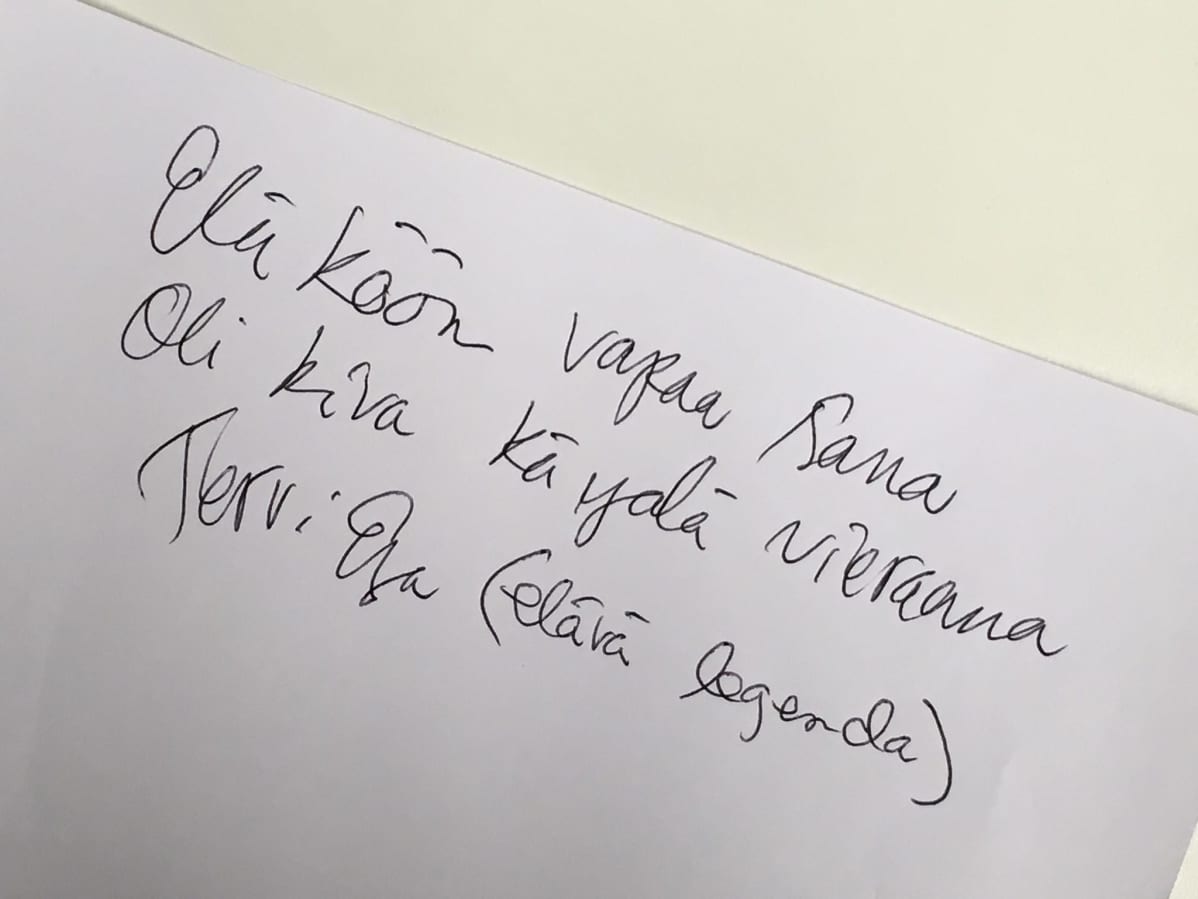 Elä köön vapaa Sana
Oli kiva käydä vieraana
Terv. Esa (elävä legenda)